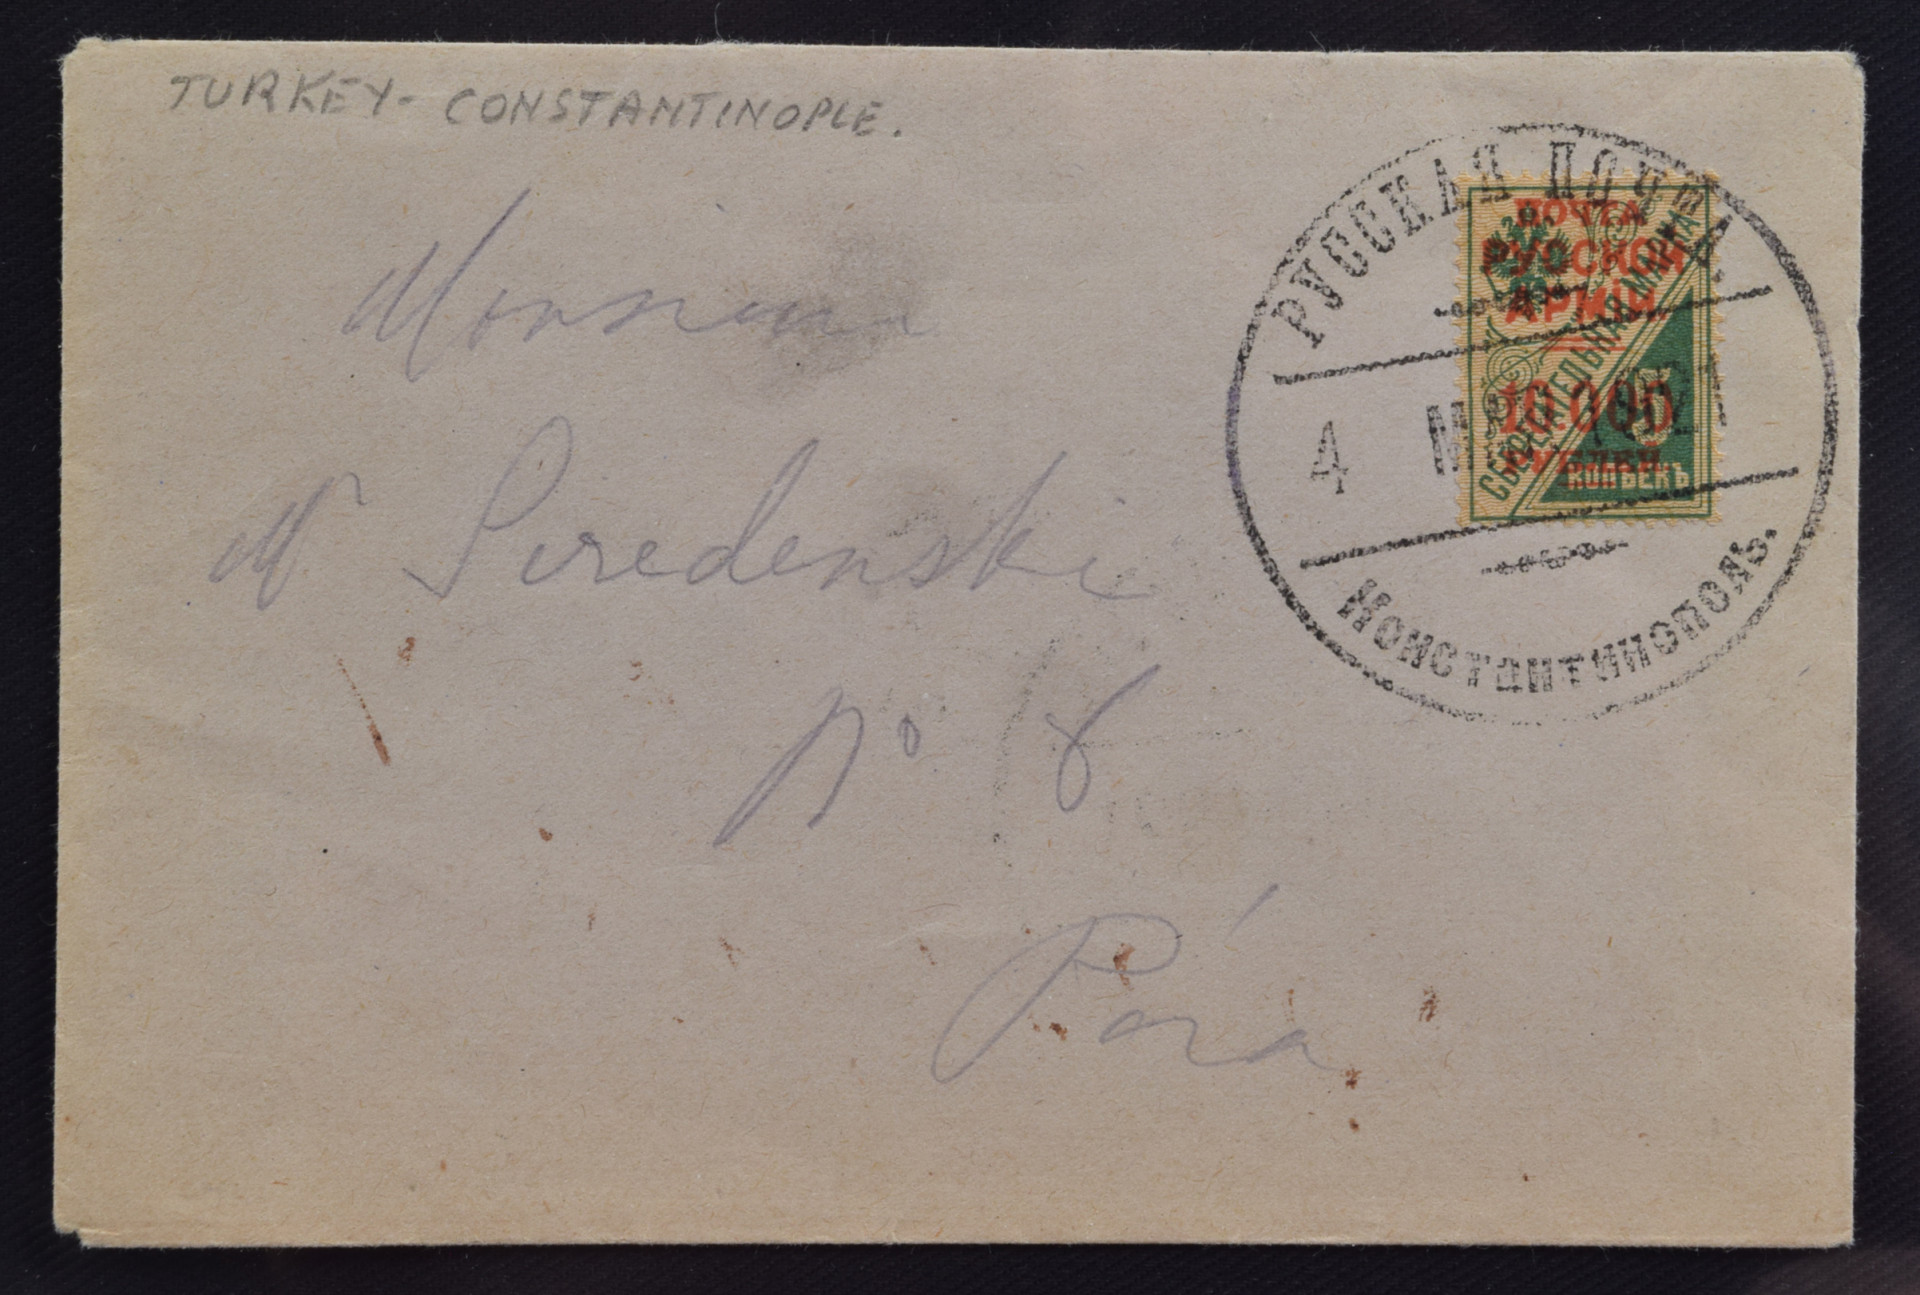 TURKEY - CONSTANTINOPLE.
РУССКАЯ ПОЧТА.
ПОЧТА
РУССКОЙ
АРМІИ
СБЕРЕГАТЕЛЬНАЯ МАРКА
10.000
РУБЛЕЙ
КОПѢЕКЪ
4
Константинополь.
Monsieur
Mr
No 8
Péra